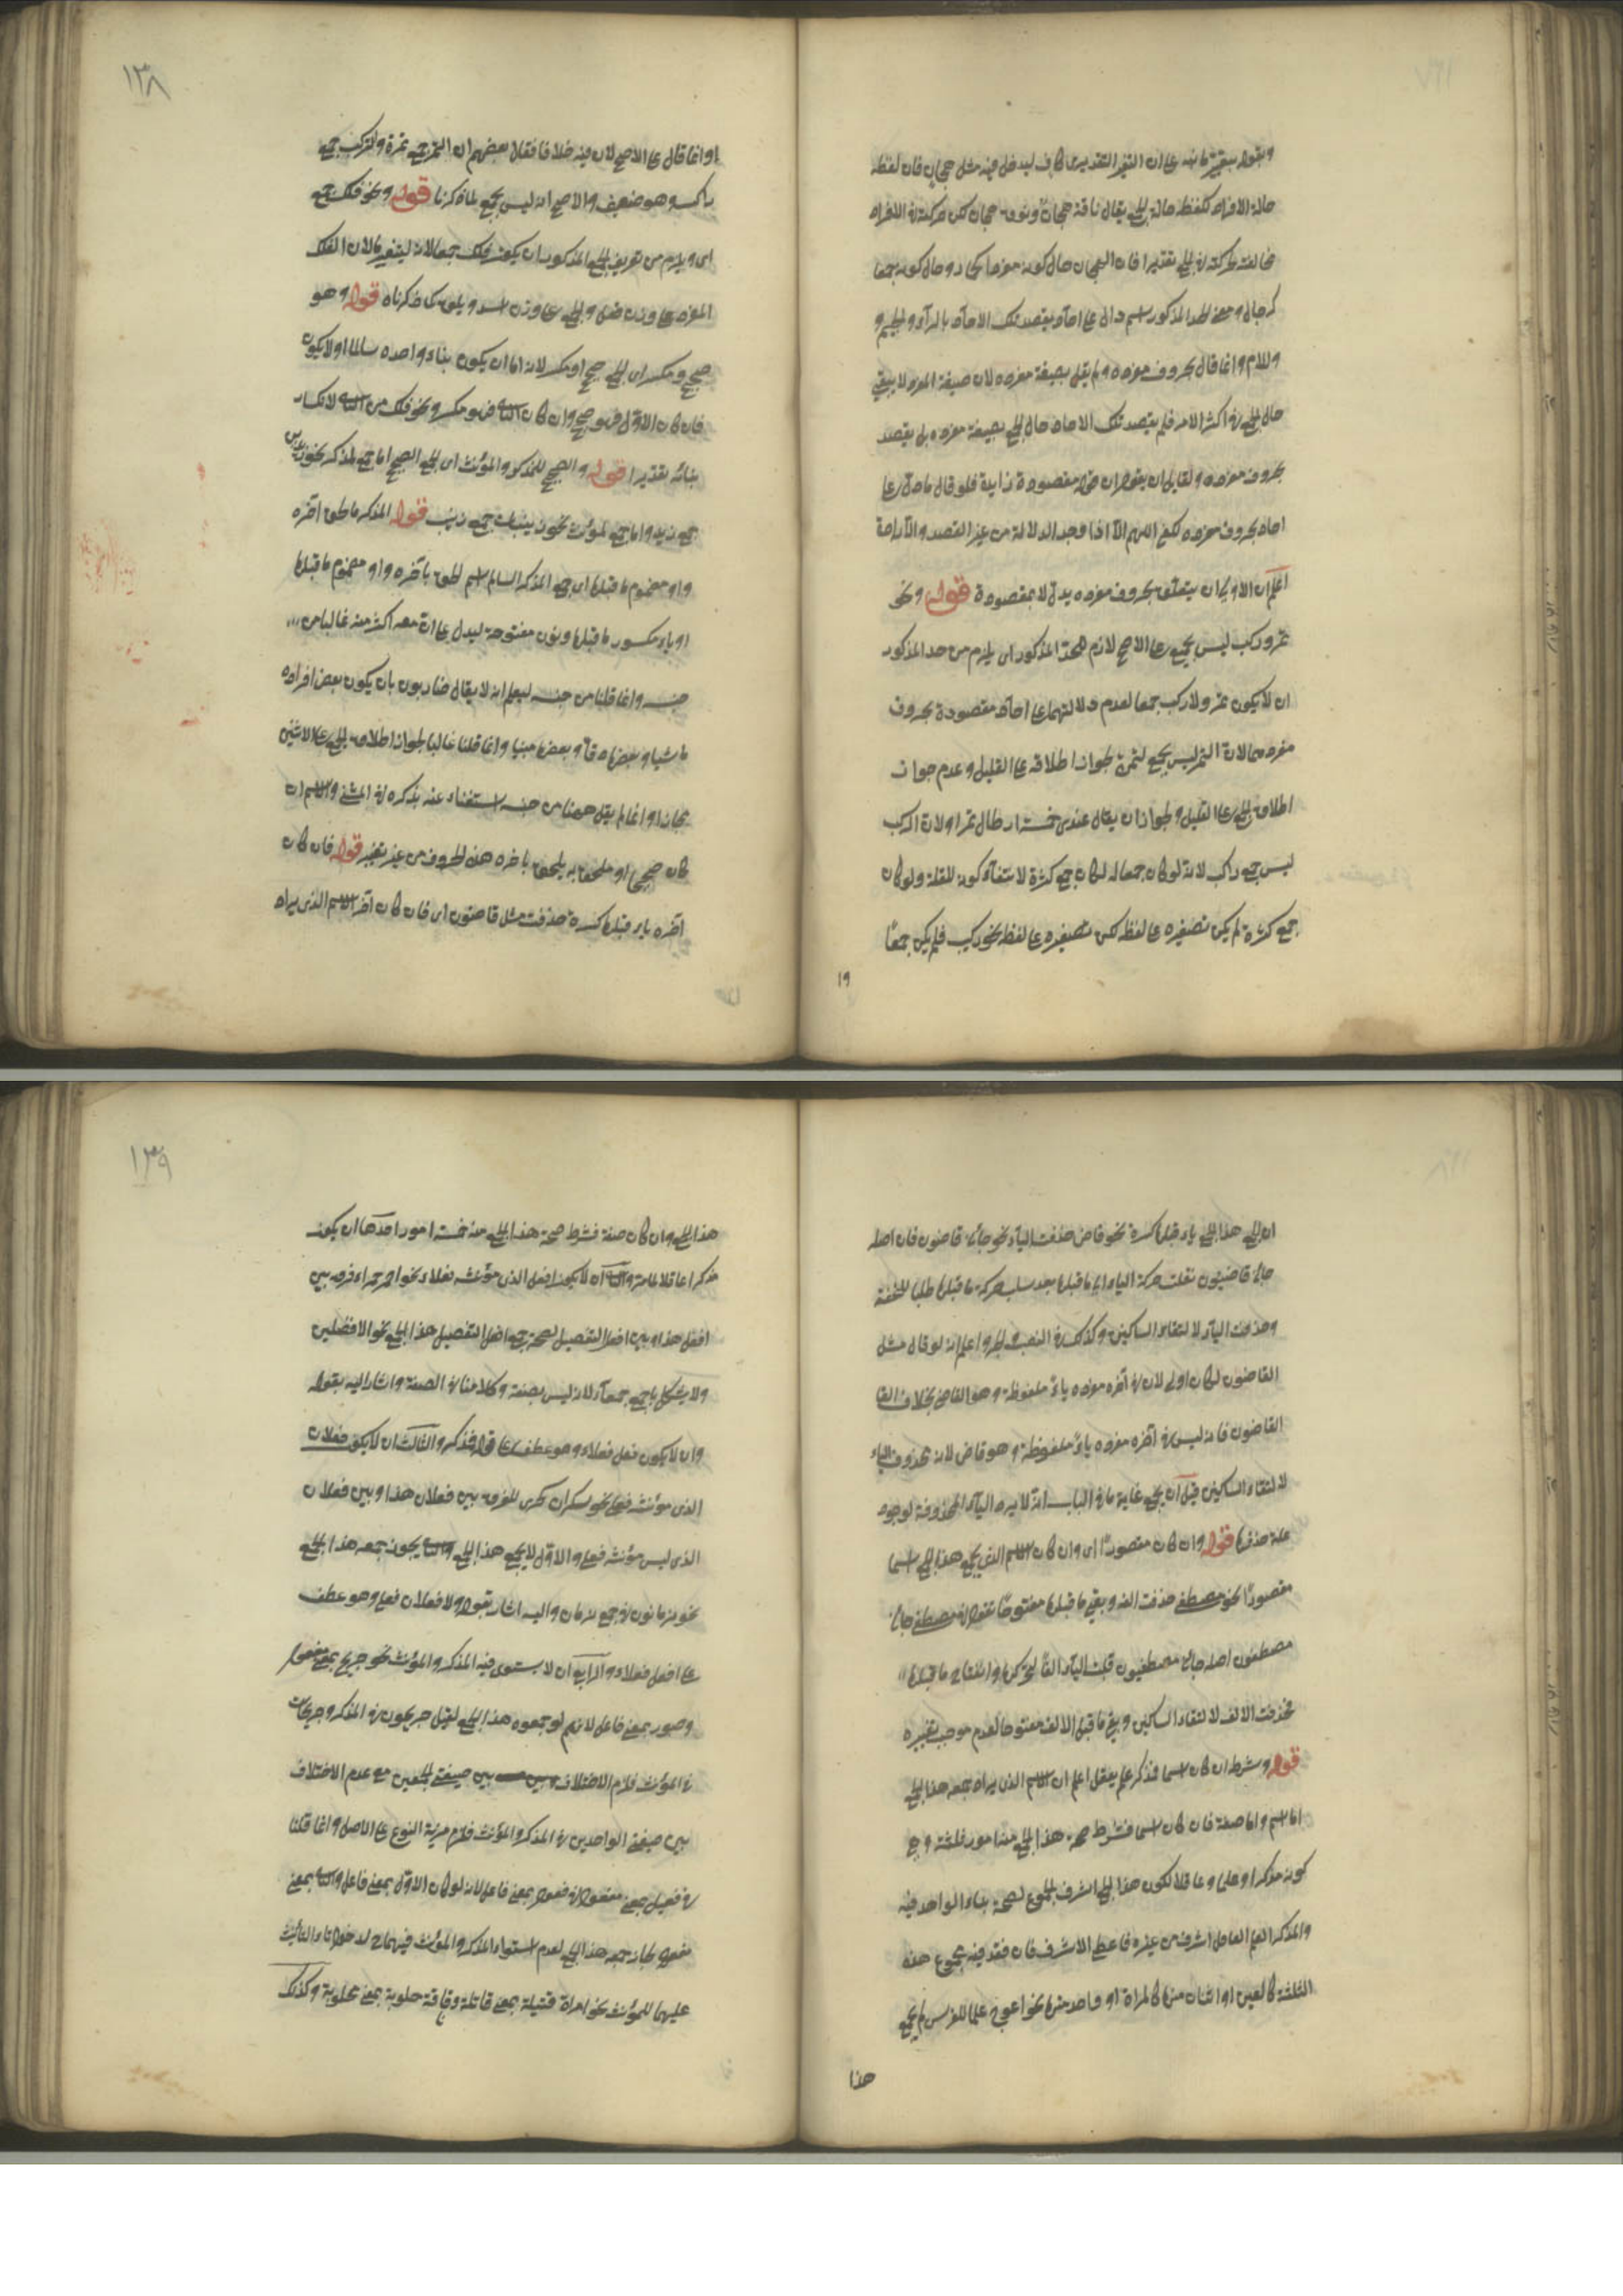 وبقوله بتغيير ما نبه على ان التغير التقديرى كاف ليدخل فيه مثل هجان فان لفظه
حالة الافراد كلفظه حالة الجمع يقال ناقة هجان ونوق هجان لكن حركته فى الافراد
مخالفة لحركته فى الجمع تقديرا فان الهجان حال كونه مفردا كحمار وحال كونه جمعا
كرجال ومعنى الحد المذكور اسم دال على احآد يقصد تلك الاحآد بالرآء والجيم و
واللام وانما قال بحروف مفرده ولم يقل بصيغة مفرده لان صيغة المفرد لا يبقى
حال الجمع فى اكثر الامر فلم يقصد تلك الاحاد حال الجمع بصيغة مفرده بل يقصد
بحروف مفرده ولقايل ان يقول ان قوله مقصودة زايدة فلو قال ما دل على
احاد بحروف مفرده لكفى اللهم الآ اذا وجد الدلالة من غير القصد والآرادة
اعلم ان الاولى ان يتعلق بحروف مفرده بدل لا بمقصودة قوله ونحو
تمر وركب ليس بجمع على الاصح لازم للحد المذكور اى يلزم من حد المذكور
ان لا يكون تمر ولا ركب جمعا لعدم دلالتهما على احآد مقصودة بحروف
مفردهما لان التمر ليس بجمع لتمرة لجواز اطلاقه على القليل وعدم جواز
اطلاق الجمع على القليل ولجواز ان يقال عندى خمسة ارطال تمرا ولان الركب
ليس جمع راكب لانه لو كان جمعا له لكان جمع كثرة لانتفآء كونه للقلة ولو كان
جمع كثرة لم يكن تصغيره على لفظه لكن تصغيره على لفظه نحو ركيب فلم يكن جمعًا
١٩
١٣٨
وانما قال على الاصح لان فيه خلافا فقال بعضهم ان التمر جمع تمرة والركب جمع
راكب وهو ضعيف والاصح انه ليس بجمع لما ذكرنا قوله ونحو فلك جمع
اى ويلزم من تعريف الجمع المذكور ان يكون فلك جمعا لانه ليتغير ما لان الفلك
المفرد على وزن قفل والجمع على وزن اسد ويلحق كما ذكرناه قوله وهو
صحيح ومكسر اى الجمع صحيح او مكسر لانه اما ان يكون بناء واحده سالما او لا يكون
فان كان الاول فهو صحيح وان كان الثانى فهو مكسر ونحو فلك من الثانى لانكسار
بنائه تقديرا قوله والصحيح للمذكر والمؤنث اى الجمع الصحيح اما جمع المذكر نحو زيدون
جمع زيد واما جمع المؤنث نحو زينبات جمع زينب قوله المذكر ما لحق آخره
واو مضموم ما قبلها اى جمع المذكر السالم اسم لحق بآخره واو مضموم ما قبلها
او ياء مكسور ما قبلها ونون مفتوحة ليدل على ان معه اكثر منه غالبا من
جنسه وانما قلنا من جنسه ليعلم انه لا يقال ضاربون بان يكون بعض افراده
ماشيا وبعضها وبعضها مبنيا وانما قلنا غالبا لجواز اطلاق الجمع على الاثنين
مجازا وانما لم يقل ههنا من جنسه استغناء عنه بذكره فى المثنى والاسم ان
كان صحيحا او ملحقا به يلحق باخره هذه الحروف من غير تغيير قوله فان كان
آخره ياء قبلها كسرة حذفت مثل قاضون اى فان كان آخر الاسم الذى يراد
ان الجمع هذا الجمع ياء قبلها كسرة نحو قاض حذفت اليآء نحو جائنى قاضون فان اصله
جائنى قاضيون نقلت حركة الياء الى ما قبلها بعد سلب حركة ما قبلها طلبا للخفة
وحذفت اليآء لالتقاء الساكنين وكذلك فى النصب والجر واعلم انه لو قال مثل
القاضون لكان اولى لان فى آخره مفرده ياءً ملفوظة وهو القاضى بخلاف القا
القاضون فانه ليس فى آخره مفرده ياءً ملفوظة وهو قاض لانه محذوف الياء
لالتقاء الساكنين قبل آن يجمع غاية ما فى الباب انه لا يرد اليآء المحذوفة لوجود
علة حذفها قوله وان كان مقصورًا اى وان كان الاسم الذى يجمع هذا الجمع اسما
مقصورًا نحو مصطفى حذفت الفه وبقى ما قبلها مفتوحًا تقول فى مصطفى جائنى
مصطفون اصله جائنى مصطفيون قلبت اليآء الفًا لتحركها وانفتاح ما قبلها
فحذفت الالف لالتقاء الساكنين وبقى ما قبل الالف مفتوحا لعدم موجب تغييره
قوله وشرطه ان كان اسما فمذكر علم يعقل اعلم ان الاسم الذى يراد جمعه هذا الجمع
اما اسم واما صفة فان كان اسما فشرط صحة هذا الجمع منه امور ثلثة وهى
كونه مذكرا وعلما وعاقلا لكون هذا الجمع اشرف الجموع لصحة بناء الواحد فيه
والمذكر العلم العاقل اشرف من غيره فاعطى الاشرف فان فقد فيه مجموع هذه
الثلثة كالعين او اثنان منها كالمرأة او واحد منها نحو اعوج علما للفرس لم يجمع
هذا
١٣٩
هذا الجمع وان كان صفة فشرط صحة هذا الجمع منه خمسة امور احدها ان يكون
مذكرا عاقلا لما مر والثانى ان لا يكون افعل الذى مؤنثه فعلاء نحو احمر حمراء فرقا بين
افعل هذا وبين افعل التفضيل لصحة جمع افعل التفضيل هذا الجمع نحو الافضلين
ولا يشكل باجمع جمعآء لانه ليس بصفة وكلامنا فى الصفة واشار اليه بقوله
وان لا يكون افعل فعلاء وهو عطف على قوله فمذكر والثالث ان لا يكون فعلان
الذى مؤنثه فعلى نحو سكران سكرى للفرق بين فعلان هذا وبين فعلان
الذى ليس مؤنثه فعلى والاول لا يجمع هذا الجمع والثانى يجوز جمعه هذا الجمع
نحو ندمانون فى جمع ندمان واليه اشار بقوله ولا فعلان فعلى وهو عطف
على افعل فعلاء والرابع ان لا يستوى فيه المذكر والمؤنث نحو جريح بمعنى مفعول
وصبور بمعنى فاعل لانهم لو جمعوه هذا الجمع لقيل جريحون فى المذكر وجريحات
فى المؤنث فلزم الاختلاف بين صيغتى الجمعين مع عدم الاختلاف
بين صيغة الواحدين فى المذكر والمؤنث فلزم مزية النوع على الاصل وانما قلنا
فى فعيل بمعنى مفعول وفعول بمعنى فاعل لانه لو كان الاول بمعنى فاعل والثانى بمعنى
مفعول لجاز جمعه هذا الجمع لعدم استواء المذكر والمؤنث فيهما ح لدخول تاء التأنيث
عليهما للمؤنث نحو امرأة قتيلة بمعنى قاتلة وناقة حلوبة بمعنى محلوبة وكذلك